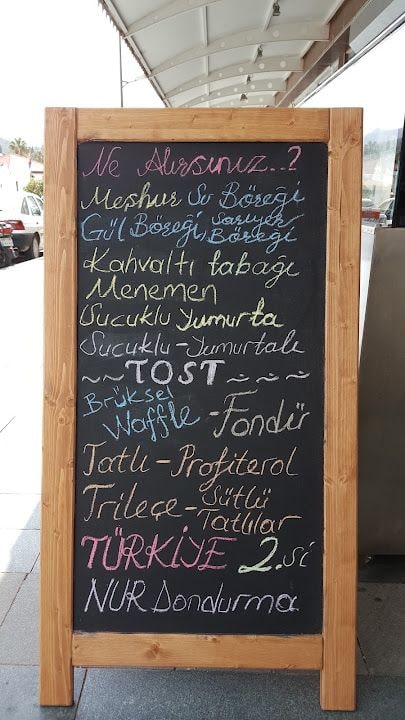 Ne Alırsınız..?
Meşhur Su Böreği
Gül Böreği, Sarıyer Böreği
Kahvaltı tabağı
Menemen
Sucuklu yumurta
Sucuklu-Yumurtalı
~~TOST~~~
Brüksel Waffle-Fondü
Tatlı-Profiterol
Trileçe-Sütlü Tatlılar
TÜRKİYE 2.si
NUR Dondurma